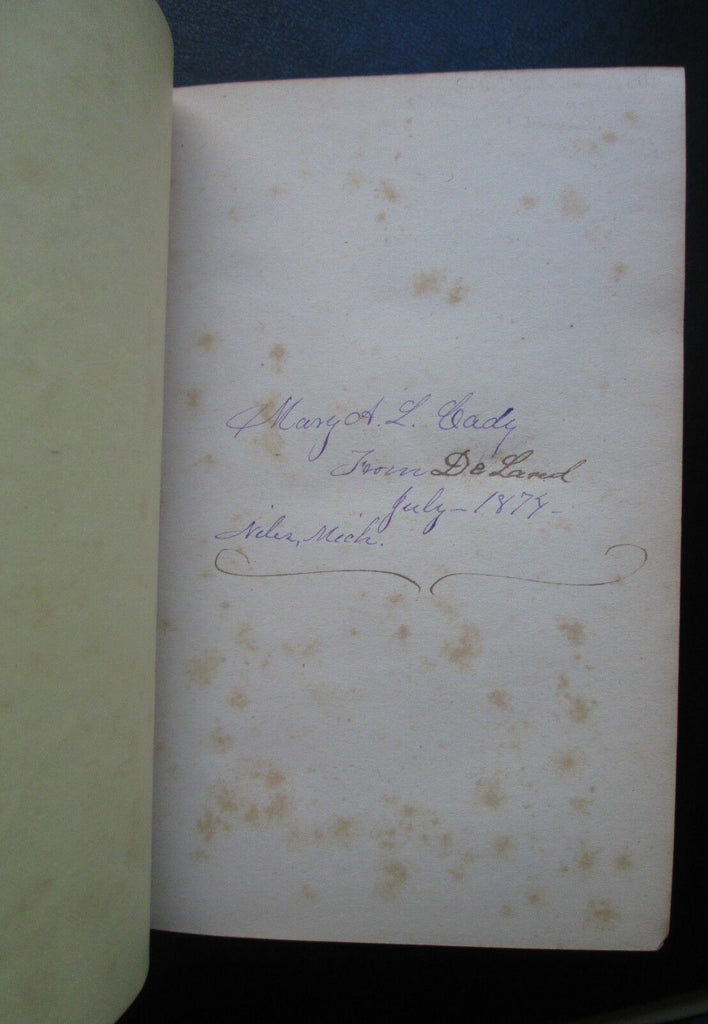 Mary A. L. Cady
From De Land
July - 1878 -
Niles, Mich.